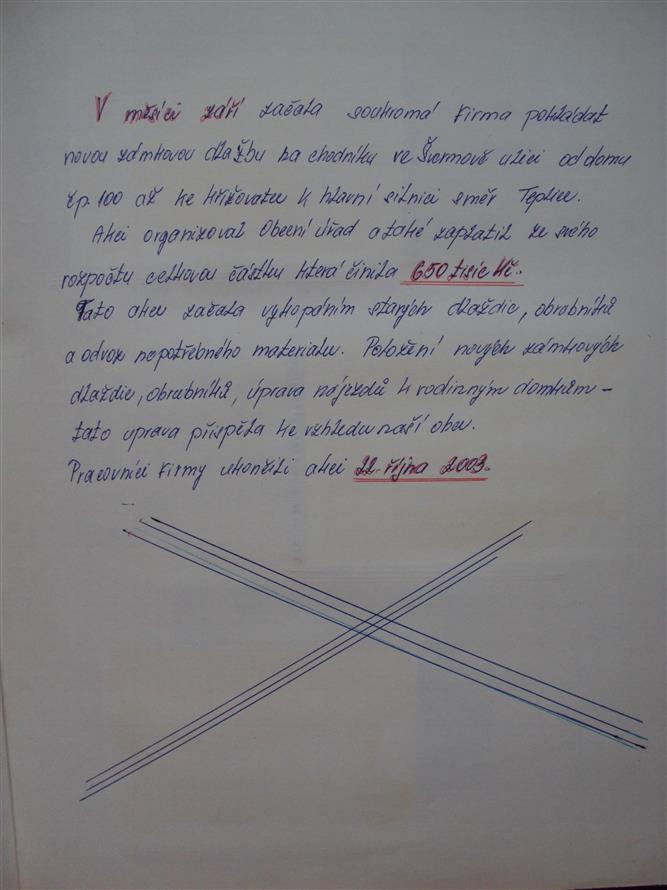 V měsíci září začala soukromá firma pokládat
novou zámkovou dlažbu na chodníku ve Švermově ulici od domu
čp. 100 až ke křižovatce k hlavní silnici směr Teplice.
Akci organizoval Obecní úřad a také zaplatil ze svého
rozpočtu celkovou částku která činila 650 tisíc Kč.
Tato akce začala vykopáním starých dlaždic, obrubníků
a odvoz nepotřebného materialu. Položení nových zámkových
dlaždic, obrubníků, úprava nájezdů k rodinným domkům –
tato uprava přispěla ke vzhledu naší obce.
Pracovníci firmy ukončili akci 22. října 2003.